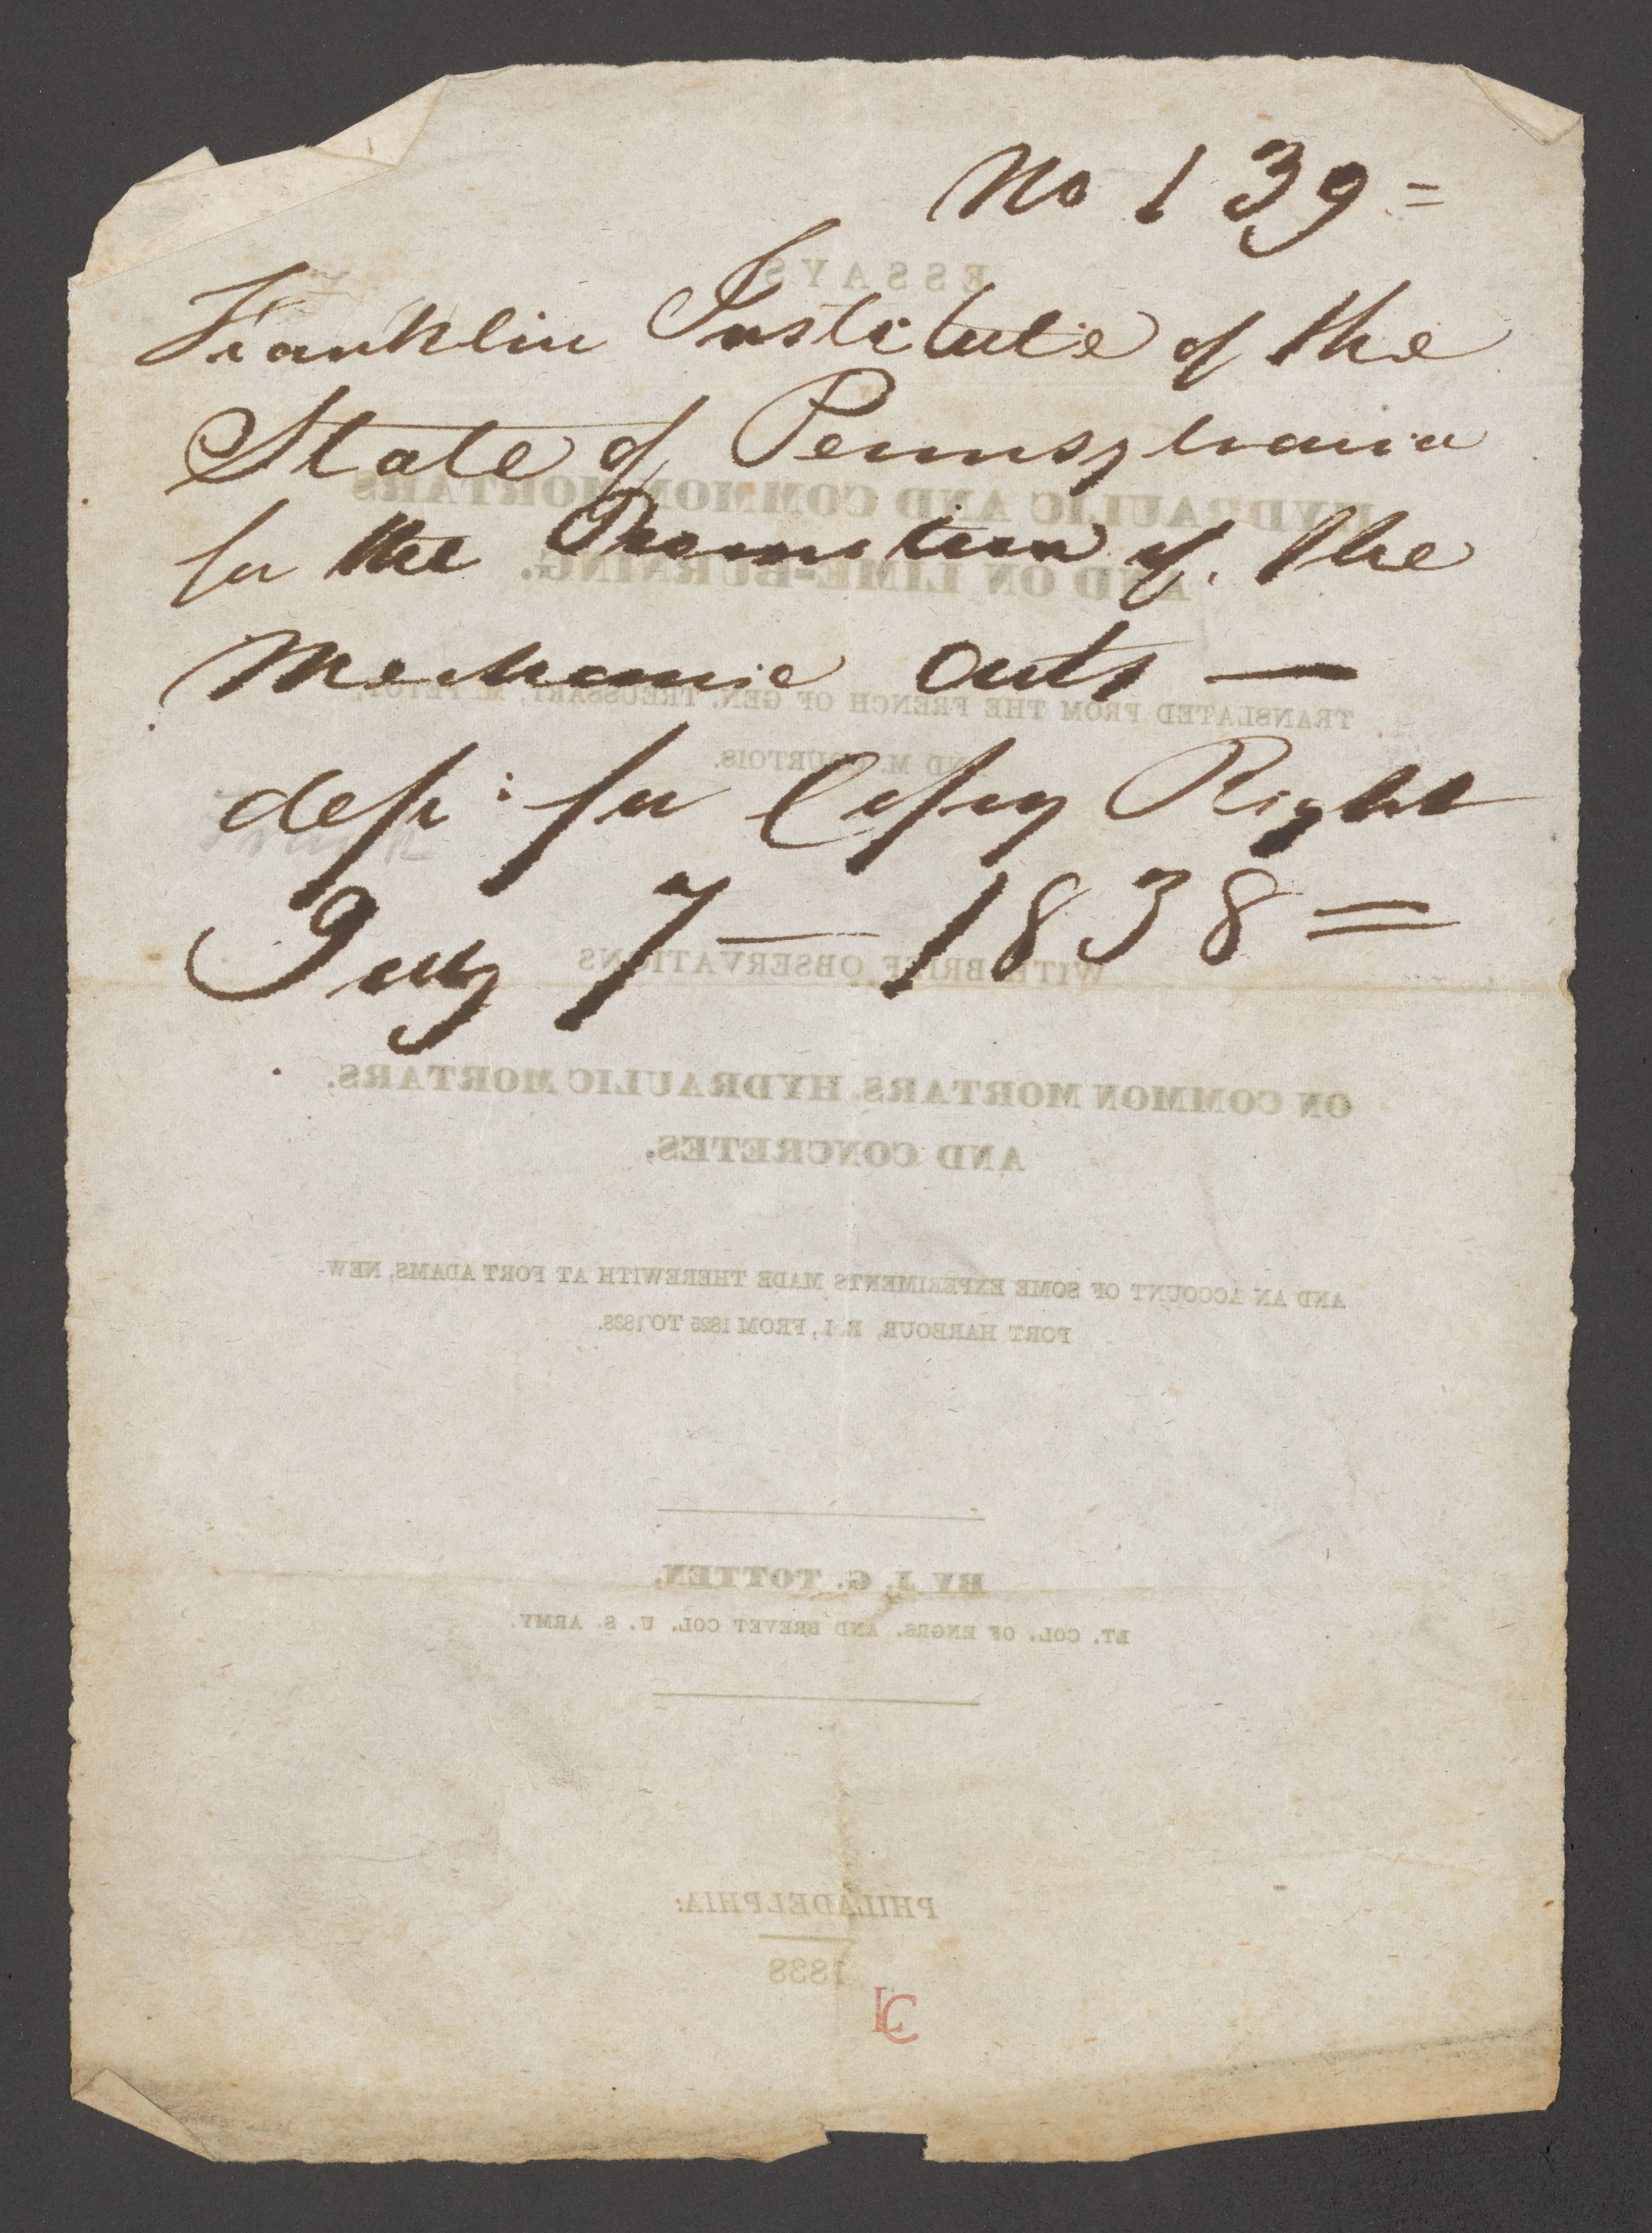 No 139=
ESSAYS
Franklin Institute of the
State of Pennsylvania
HYDRAULIC AND COMMON MORTARS
for the Promotion of the
AND ON LIME-BURNING.
Mechanic arts —
TRANSLATED FROM THE FRENCH OF GEN. TREUSSART, M. PETOT,
AND M. COURTOIS.
dep: for Copy Right
July 7 — 1838 =
WITH BRIEF OBSERVATIONS
ON COMMON MORTARS, HYDRAULIC MORTARS,
AND CONCRETES,
AND AN ACCOUNT OF SOME EXPERIMENTS MADE THEREWITH AT FORT ADAMS, NEW-
PORT HARBOUR, R. I., FROM 1825 TO 1838.
BY J. G. TOTTEN,
LT. COL. OF ENGRS. AND BREVET COL. U. S. ARMY.
PHILADELPHIA:
1838
LC